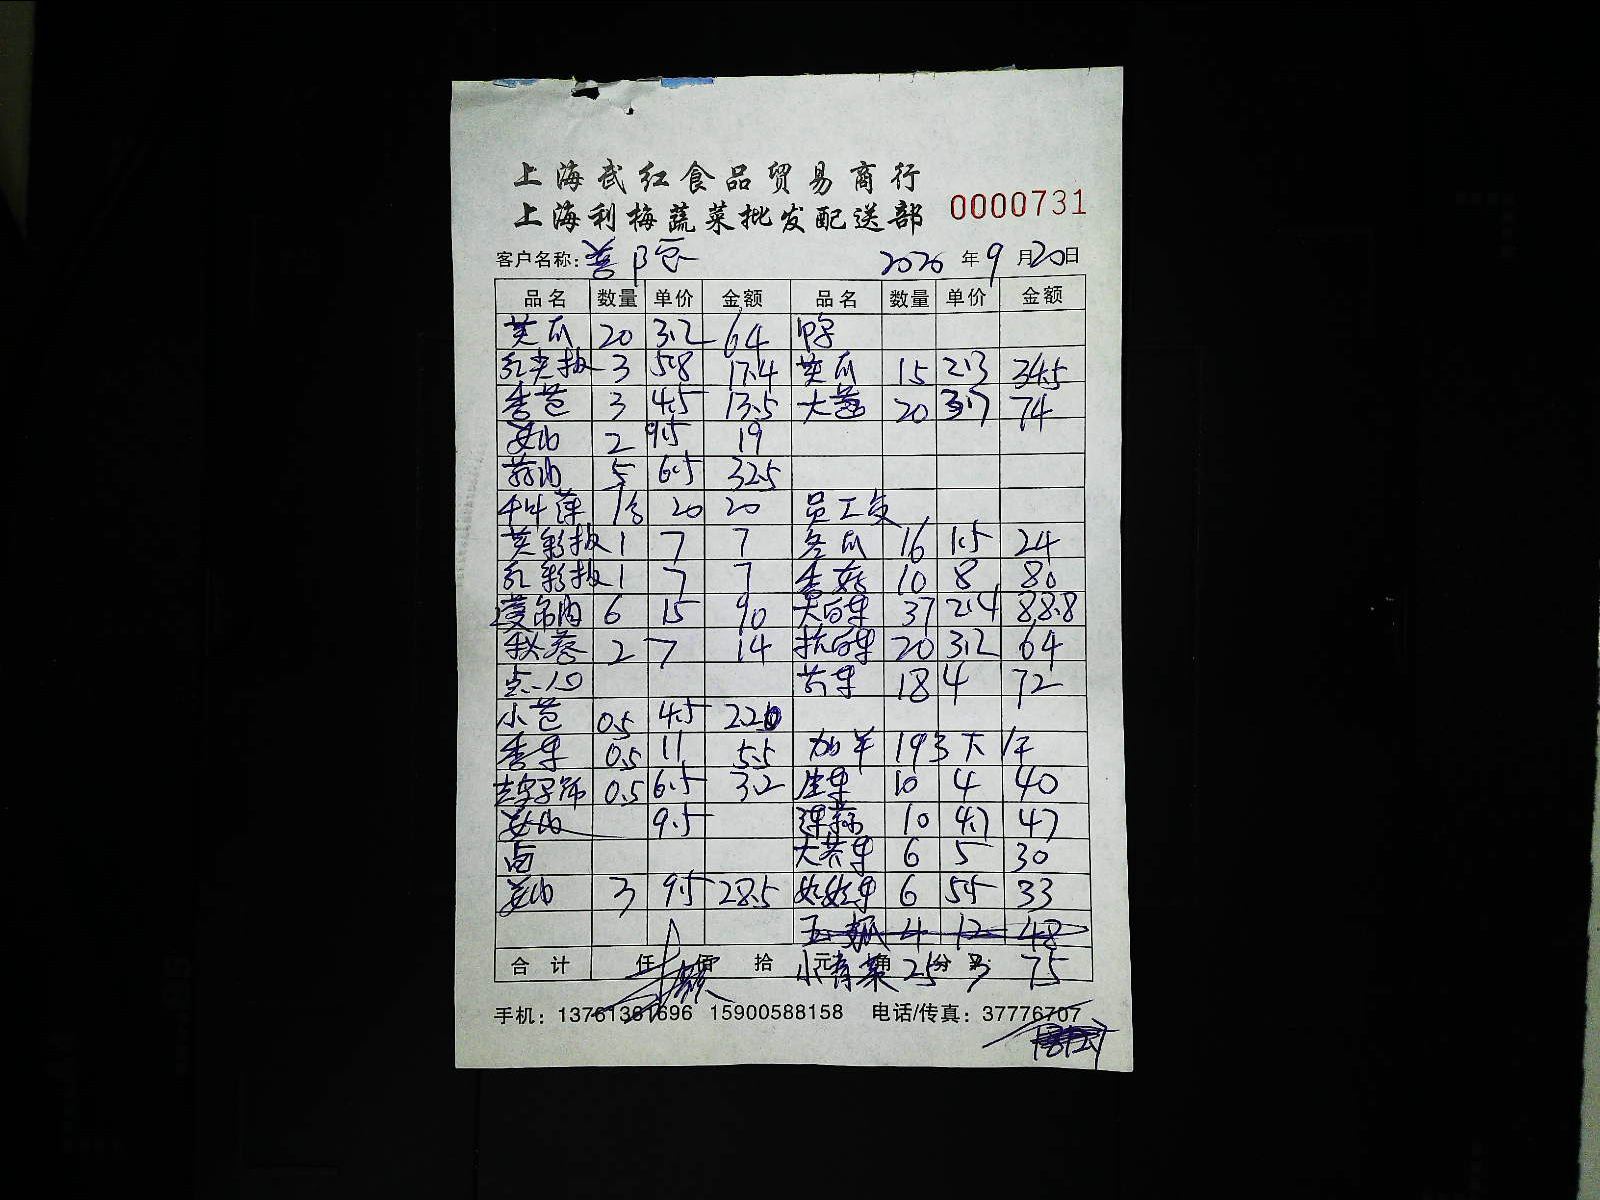 上海武红食品贸易商行
上海利梅蔬菜批发配送部
0000731
客户名称: 2020年9月20日
品名 数量 单价 金额 品名 数量 单价 金额
黄瓜 20 3.2 64
红尖椒 3 5.8 17.4 黄瓜 15 2.3 34.5
香芭 3 4.5 13.5 大葱 20 3.7 74
2 9.5 19
5 6.5 32.5
1合 20 20 员工餐
黄彩椒 1 7 7 冬瓜 16 1.5 24
红彩椒 1 7 7 香菇 10 8 80
6 15 90 大白菜 37 2.4 88.8
秋葵 2 7 14 杭白菜 20 3.2 64
点心 芥菜 18 4 72
小芭 0.5 4.5 2.20
香菜 0.5 11 5.5 加单 193
0.5 6.5 3.2 生菜 10 4 40
9.5 10 4.7 47
卤 6 5 30
3 9.5 28.5 6 5.5 33
4 12 48
合计 仟 佰 拾 元 角 分 小青菜 25 3 75
手机: 13761361696 15900588158 电话/传真: 37776707